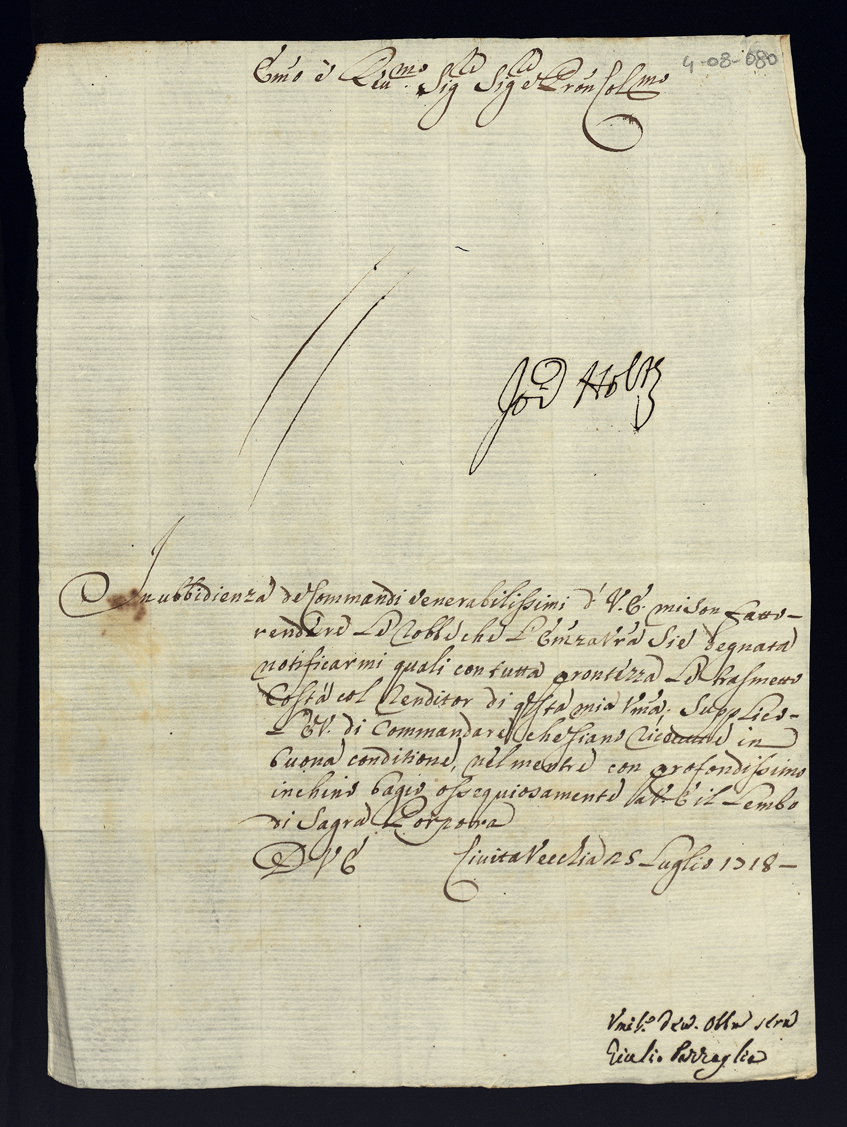 4-08-080
Emo è Reu.mo Sig.r Sig.r è Pron Col.mo
In ubbidienza de Commandi venerabilissimi d' V. E. mi son fatto
rendere Le robbe che L'Emza Vra Si è degnata
notificarmi quali con tutta prontezza Le trasmetto
Costà col Renditor di qsta mia Vma: Supplico
L'E.V. di Commandare che siano riceute in
buona conditione, nel mentre con profondissimo
inchino bagio ossequiosamente l'a V. E il Lembo
di Sagra Porpora
D V E Civita Vecchia 25 Luglio 1718
Vmil.o deu. Obbo seru
Giulio